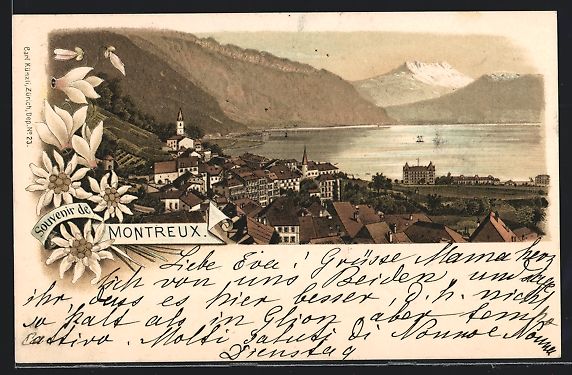 Carl Künzli, Zürich, Dep. No 23.
Souvenir de
MONTREUX.
Liebe Eva! Grüsse Mama herz
lich von uns Beiden und sage
ihr, dass es hier besser, d. h. nicht
so kalt als in Glion aber tempo
cattivo. Molti saluti di Nonno e Nonna
Dienstag